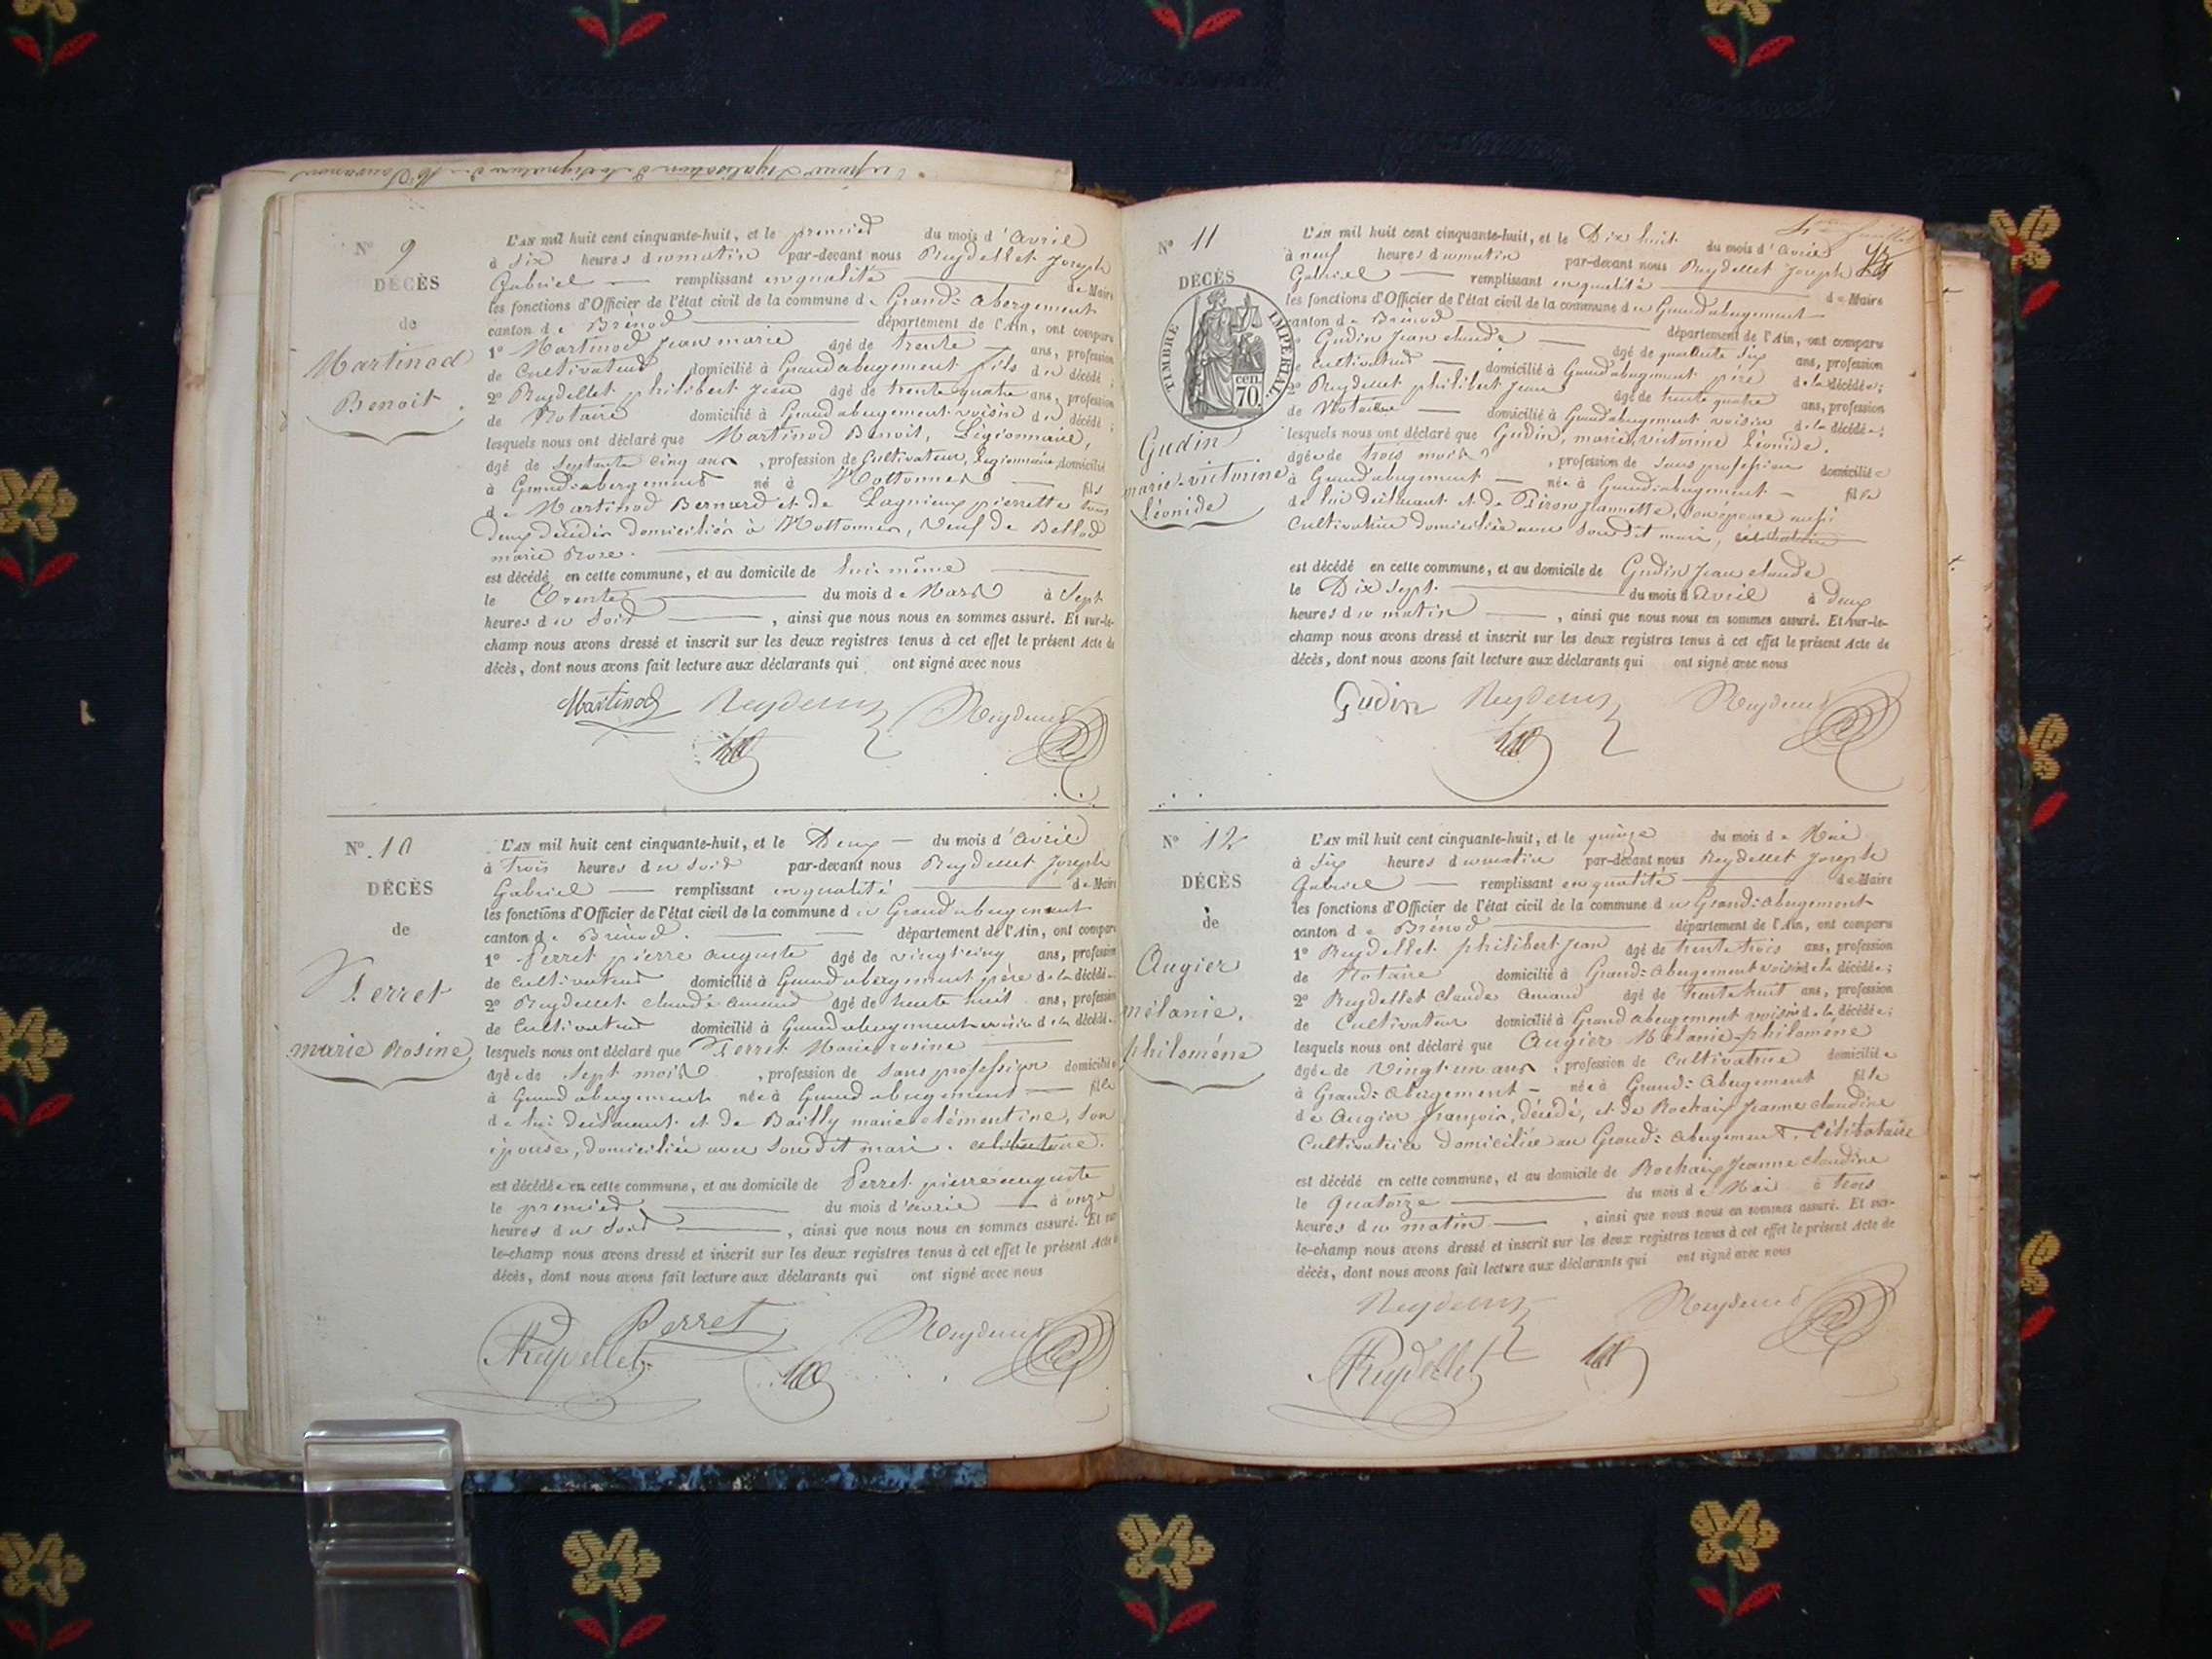 N° 9
DÉCÈS
de
Martinod
Benoit
L'AN mil huit cent cinquante-huit, et le premier du mois d'avril
à six heures du matin par-devant nous Reydellet Joseph
Gabriel remplissant en qualité de Maire
les fonctions d'Officier de l'état civil de la commune de Grand-abergement
canton de Brénod département de l'Ain, ont comparu
1° Martinod Jean marie âgé de trente ans, profession
de Cultivateur domicilié à Grand abergement fils du décédé ;
2° Reydellet philibert Jean âgé de trente quatre ans, profession
de Notaire domicilié à Grand abergement voisin du décédé ;
lesquels nous ont déclaré que Martinod Benoit, Légionnaire,
âgé de Septante cinq ans, profession de Cultivateur, Légionnaire, domicilié
à Grand-abergement né à Hottonnes fils
de Martinod Bernard et de Lagnieux pierrette tous
deux décédés domiciliés à Hottonnes, Veuf de Bellod
marie Rose.
est décédé en cette commune, et au domicile de lui-même
le Trente du mois de Mars à Sept
heures du Soir, ainsi que nous nous en sommes assuré. Et sur-le-
champ nous avons dressé et inscrit sur les deux registres tenus à cet effet le présent Acte de
décès, dont nous avons fait lecture aux déclarants qui ont signé avec nous
Martinod Reydellet Reydellet
N° 10
DÉCÈS
de
Perret
marie Rosine
L'AN mil huit cent cinquante-huit, et le Deux du mois d'avril
à Trois heures du Soir par-devant nous Reydellet Joseph
Gabriel remplissant en qualité de Maire
les fonctions d'Officier de l'état civil de la commune du Grand abergement
canton de Brénod. département de l'Ain, ont comparu
1° Perret pierre auguste âgé de vingt cinq ans, profession
de Cultivateur domicilié à Grand abergement père de la décédée
2° Reydellet Claude Amand âgé de trente huit ans, profession
de Cultivateur domicilié à Grand abergement voisin de la décédée
lesquels nous ont déclaré que Perret Marie rosine
âgée de Sept mois, profession de Sans profession domiciliée
à Grand abergement née à Grand abergement fille
de lui déclarant et de Bailly marie clémentine, son
épouse, domiciliée avec Son dit mari. celibataire.
est décédée en cette commune, et au domicile de Perret pierre auguste
le premier du mois d'avril à onze
heures du Soir, ainsi que nous nous en sommes assuré. Et sur-
le-champ nous avons dressé et inscrit sur les deux registres tenus à cet effet le présent Acte de
décès, dont nous avons fait lecture aux déclarants qui ont signé avec nous
Perret Reydellet
Reydellet
N° 11
DÉCÈS
TIMBRE IMPÉRIAL
70 cen.
Gudin
marie-victorine
léonide
L'AN mil huit cent cinquante-huit, et le Dix huit du mois d'avril
à neuf heures du matin par-devant nous Reydellet Joseph
Gabriel remplissant en qualité de Maire
les fonctions d'Officier de l'état civil de la commune du Grand abergement
canton de Brénod département de l'Ain, ont comparu
1° Gudin Jean claude âgé de quarante six ans, profession
de Cultivateur domicilié à Grand abergement père de la décédée ;
2° Reydellet philibert Jean âgé de trente quatre ans, profession
de Notaire domicilié à Grand abergement voisin de la décédée ;
lesquels nous ont déclaré que Gudin, marie, victorine léonide.
âgée de trois mois, profession de Sans profession domiciliée
à Grand abergement née à Grand abergement fille
de lui déclarant et de Piron Jeannette, son épouse aussi
Cultivatrice domiciliée avec Son dit mari,
est décédé en cette commune, et au domicile de Gudin Jean claude
le Dix Sept. du mois d'avril à deux
heures du matin, ainsi que nous nous en sommes assuré. Et sur-le-
champ nous avons dressé et inscrit sur les deux registres tenus à cet effet le présent Acte de
décès, dont nous avons fait lecture aux déclarants qui ont signé avec nous
Gudin Reydellet Reydellet
N° 12
DÉCÈS
de
Augier
mélanie,
philoméne
L'AN mil huit cent cinquante-huit, et le quinze du mois de Mai
à Six heures du matin par-devant nous Reydellet Joseph
Gabriel remplissant en qualité de Maire
les fonctions d'Officier de l'état civil de la commune du Grand-abergement
canton de Brénod département de l'Ain, ont comparu
1° Reydellet philibert Jean âgé de trente trois ans, profession
de Notaire domicilié à Grand-abergement voisin de la décédée ;
2° Reydellet Claude Amand âgé de trente huit ans, profession
de Cultivateur domicilié à Grand abergement voisin de la décédée ;
lesquels nous ont déclaré que Augier Mélanie-philomène
âgée de Vingt un ans, profession de Cultivatrice domiciliée
à Grand-abergement née à Grand-abergement fille
de Augier françois, décédé, et de Rochaix Jeanne claudine
Cultivatrice domiciliée au Grand-abergement. Célibataire
est décédé en cette commune, et au domicile de Rochaix Jeanne claudine
le Quatorze du mois de Mai à trois
heures du matin, ainsi que nous nous en sommes assuré. Et sur-
le-champ nous avons dressé et inscrit sur les deux registres tenus à cet effet le présent Acte de
décès, dont nous avons fait lecture aux déclarants qui ont signé avec nous
Reydellet Reydellet
Reydellet